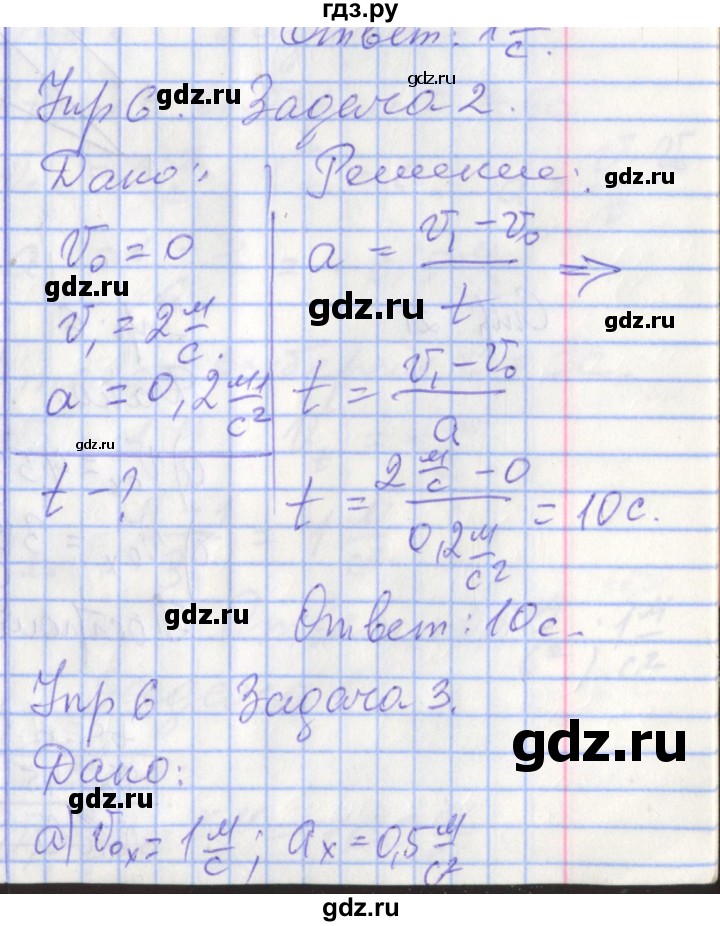 гдз.ру
Ответ: 1 м/с.
gdz.ru
Упр 6. gdz.ru Задача 2.
Дано: Решение:
gdz.ru
v₀ = 0 a = (v₁ – v₀)/t ⇒
gdz.ru gdz.ru
gdz.ru
v₁ = 2 м/с.
a = 0,2 м/с² t = (v₁ – v₀)/a
gdz.ru
t – ? t = (2 м/с – 0)/(0,2 м/с²) = 10 с.
gdz.ru
Ответ: 10 с.
Упр 6 Задача 3.
gdz.ru
Дано:
gdz.ru
а) v₀ₓ = 1 м/с; aₓ = 0,5 м/с²
gdz.ru